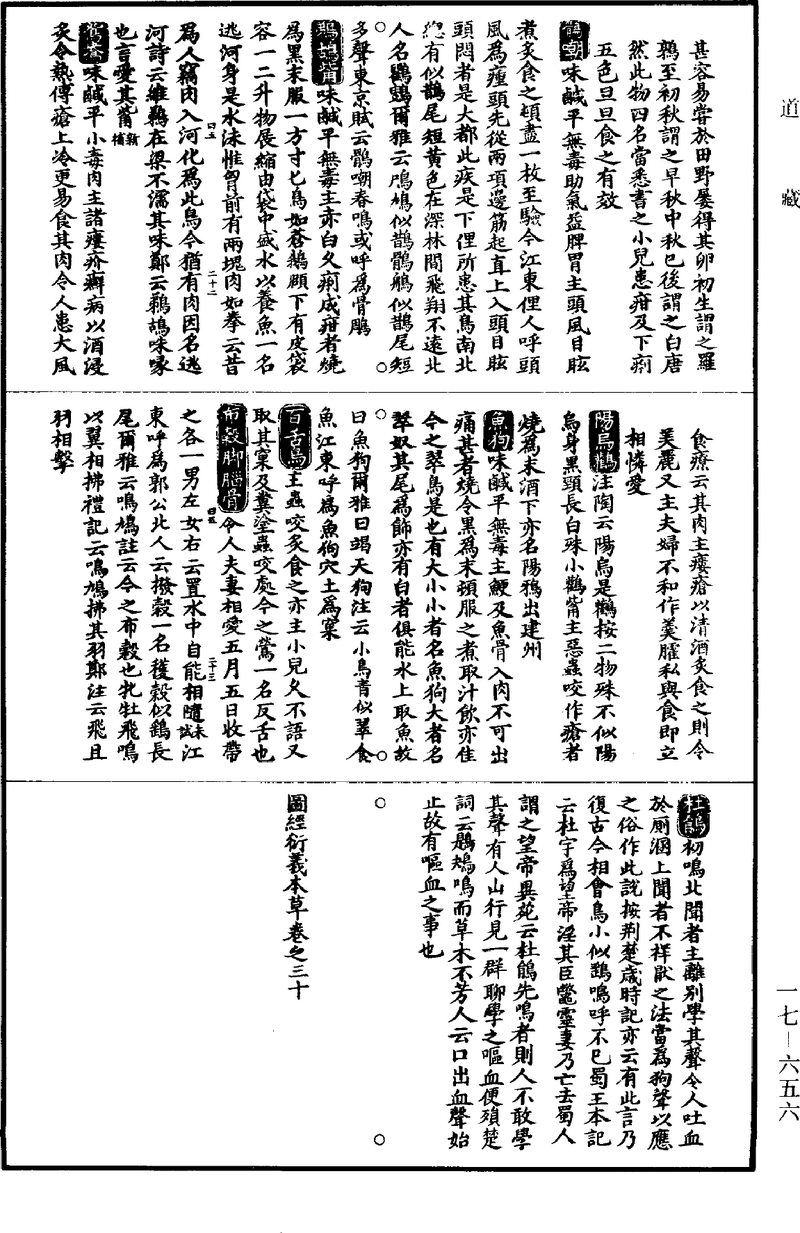 道藏
甚容易嘗於田野屢得其卵初生謂之羅
鶉至初秋謂之早秋中秋已後謂之白唐
然此物四名當悉書之小兒患疳及下痢
五色旦旦食之有效
鶻嘲味鹹平無毒助氣益脾胃主頭風目眩
煮炙食之頓盡一枚至驗今江東俚人呼頭
風為瘇頭先從兩項邊筋起直上入頭目眩
頭悶者是大都此疾是下俚所患其鳥南北
總有似鵲尾短黃色在深林間飛翔不遠北
人名鸜鵒爾雅云鳲鳩似鵲鶻鵃似鵲尾短
多聲東京賦云鶻嘲春鳴或呼為骨鵰
鵜鴣觜味鹹平無毒主赤白久痢成疳者燒
為黑末服一方寸匕鳥如蒼鵝頤下有皮袋
容一二升物展縮由袋中盛水以養魚一名
逃河身是水沫惟胷前有兩塊肉如拳云昔
為人竊肉入河化為此鳥今猶有肉因名逃
河詩云維鵜在梁不濡其味鄭云鵜鴣味喙
也言愛其觜新補
鴛鴦味鹹平小毒肉主諸瘻疥癬病以酒浸
炙令熱傅瘡上冷更易食其肉令人患大風
食療云其肉主瘻瘡以清酒炙食之則令
美麗又主夫婦不和作羹臛私與食即立
相憐愛
陽烏鸛注陶云陽烏是鸛按二物殊不似陽
烏身黑頸長白殊小鸛觜主惡蟲咬作瘡者
燒為末酒下亦名陽鴉出建州
魚狗味鹹平無毒主鯁及魚骨入肉不可出
痛甚者燒令黑為末頓服之煮取汁飲亦佳
今之翠鳥是也有大小小者名魚狗大者名
翠奴其尾為飾亦有白者俱能水上取魚故
曰魚狗爾雅曰竭天狗注云小鳥青似翠食
魚江東呼為魚狗穴土為窠
百舌鳥主蟲咬炙食之亦主小兒久不語又
取其窠及糞塗蟲咬處今之鶯一名反舌也
布穀脚腦骨令人夫妻相愛五月五日收帶
之各一男左女右云置水中自能相隨味江
東呼為郭公北人云撥穀一名穫穀似鷂長
尾爾雅云鳴鳩註云今之布穀也牝牡飛鳴
以翼相拂禮記云鳴鳩拂其羽鄭注云飛且
羽相擊
杜鵑初鳴北聞者主離別學其聲令人吐血
於厠溷上聞者不祥厭之法當為狗聲以應
之俗作此說按荊楚歲時記亦云有此言乃
復古今相會鳥小似鷂鳴呼不巳蜀王本記
云杜宇為望帝淫其臣鼈靈妻乃亡去蜀人
謂之望帝異苑云杜鵑先鳴者則人不敢學
其聲有人山行見一群聊學之嘔血便殞楚
詞云鶗鴂鳴而草木不芳人云口出血聲始
止故有嘔血之事也
圖經衍義本草卷之三十
一七—六五六